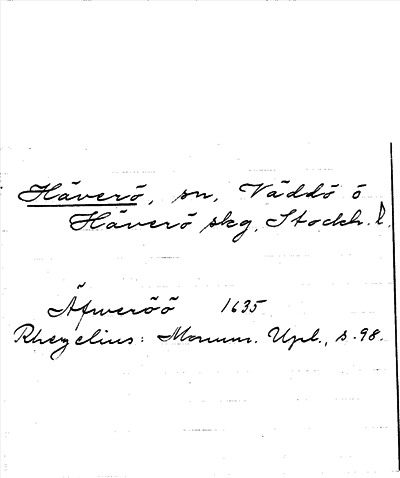 Häverö, sn, Väddö o
Häverö skg, Stockh. l.
Äfweröö 1635
Rhezelius: Monum. Upl., s. 98.